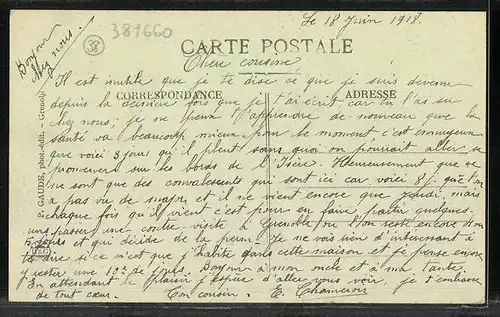 Le 18 Juin 1918.
Bonjour
chez vous.
38
381660
CARTE POSTALE
Chère cousine,
CORRESPONDANCE
ADRESSE
P. GAUDE, phot.-édit. - Grenoble
Il est inutile que je te dise ce que je suis devenu
depuis la dernière fois que je t'ai écrit car tu l'as su
chez nous; je ne peux t'apprendre de nouveau que la
santé va beaucoup mieux pour le moment c'est ennuyeux
que voici 3 jours qu'il pleut sans quoi on pourrait aller se
promener sur les bords de l'Isère. Heureusement que se
ne sont que des convalescents qui sont ici car voici 8 j. que l'on
a pas vu de major et il ne vient encore que mardi, mais
chaque fois qu'il vient c'est pour en faire partir quelques
uns passer une contre visite à Grenoble ou l'on reste encore
jours et qui décide de la perm. Je ne vois rien d'intéressant à
te dire si ce n'est que j'habite dans cette maison et je pense encore
y rester une 10e de jours. Bonjour à mon oncle et à ma tante
En attendant le plaisir j'espère d'aller vous voir, je t'embrasse
de tout cœur. Ton cousin. E.